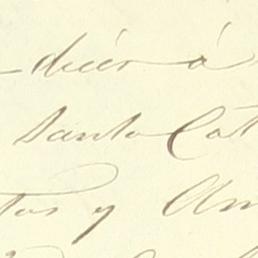 decir á
Santa Cat
tas y Am